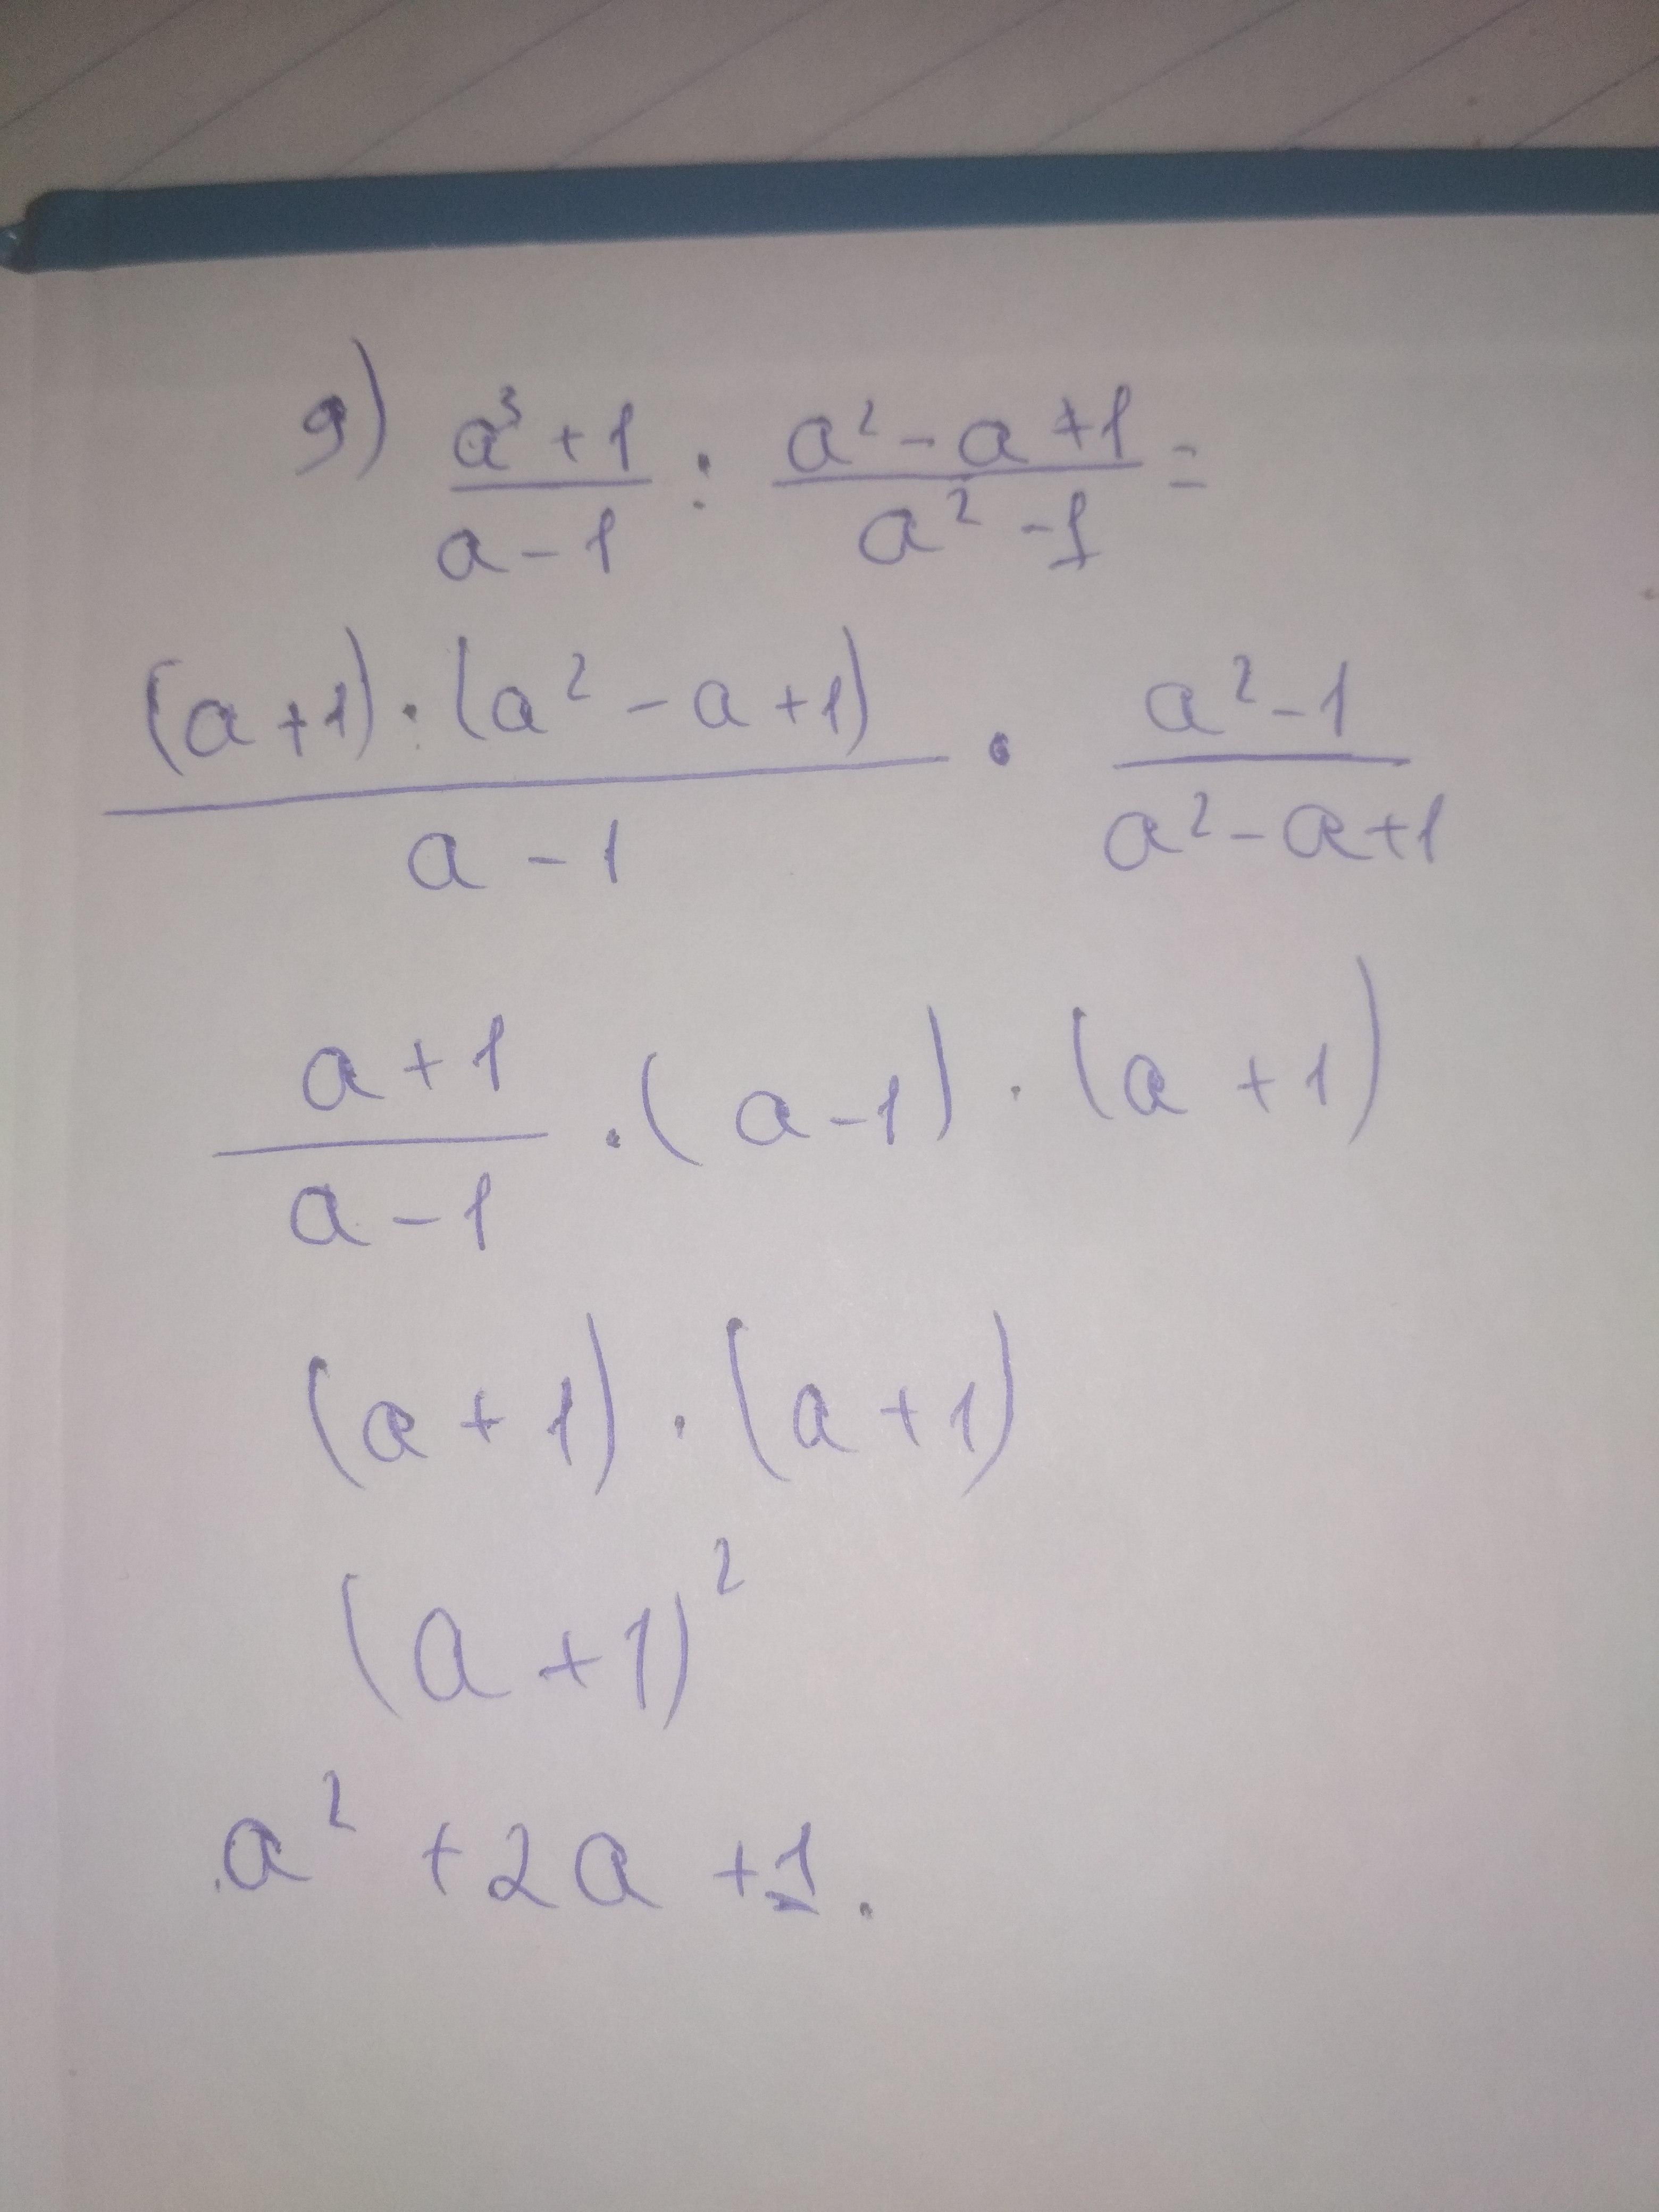 9) (a³ + 1)/(a - 1) : (a² - a + 1)/(a² - 1) =
((a + 1) · (a² - a + 1))/(a - 1) · (a² - 1)/(a² - a + 1)
(a + 1)/(a - 1) · (a - 1) · (a + 1)
(a + 1) · (a + 1)
(a + 1)²
a² + 2a + 1.